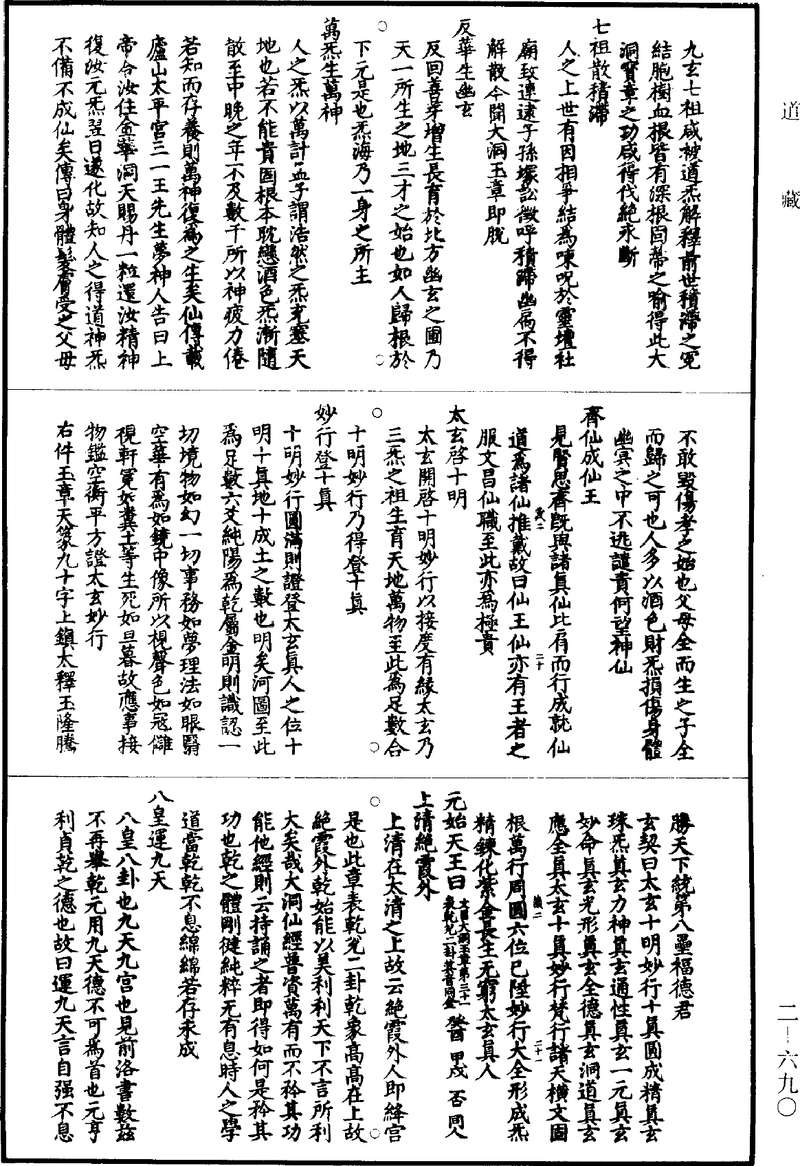 道藏
九玄七祖咸被道炁解釋前世積滯之冤
結胞樹血根皆有深根固蔕之喻得此大
洞寶章之功咸得伐絕永斷
七祖散積滯
人之上世有因相爭結為㖦呪於靈壇社
廟致連逮子孫塚訟徵呼積滯幽扃不得
解散今開大洞玉章即脫
反華生幽玄
反回善芽增生長育於北方幽玄之圃乃
天一所生之地三才之始也如人歸根於
下元是也炁海乃一身之所主
萬炁生萬神
人之炁以萬計孟子謂浩然之炁充塞天
地也若不能貴固根本耽戀酒色炁漸隨
散至中晚之年不及數千所以神疲力倦
若知而存養則萬神復為之生矣仙傳載
廬山太平宮三一王先生夢神人告曰上
帝令汝住金華洞天賜丹一粒還汝精神
復汝元炁翌日遂化故知人之得道神炁
不備不成仙矣傳曰身體髮膚受之父母
不敢毀傷孝之始也父母全而生之子全
而歸之可也人多以酒色財炁損傷身體
幽冥之中不逃譴責何望神仙
齊仙成仙王
見賢思齊既與諸真仙比肩而行成就仙
道為諸仙推戴故曰仙王仙亦有王者之
服文昌仙職至此亦為極貴
太玄啓十明
太玄開啓十明妙行以接度有緣太玄乃
三炁之祖生育天地萬物至此為足數合
十明妙行乃得登十真
妙行登十真
十明妙行圓滿則證登太玄真人之位十
明十真地十成土之數也明矣河圖至此
為足數六爻純陽為乾屬金明則識認一
切境物如幻一切事務如夢理法如眼翳
空華有為如鏡中像所以視聲色如冦讎
視軒冕如糞土等生死如旦暮故應事接
物鑑空衡平方證太玄妙行
右件玉章天篆九十字上鎮太釋玉隆騰
勝天下統第八壘福德君
玄契曰太玄十明妙行十真圓成精真玄
珠炁真玄力神真玄通性真玄一元真玄
妙命真玄光形真玄全德真玄洞道真玄
應全真太玄十真妙行梵行諸天橫文圓
根萬行周圓六位已陞妙行大全形成炁
精鍊化紫金長生无窮太玄真人
元始天王曰 文昌大洞玉章第三十一 表乾兌二卦其音同金 癸酉 甲戌 否 同人
上清絕霞外
上清在太清之上故云絕霞外人即絳宮
是也此章表乾兌二卦乾象高高在上故
絕霞外乾始能以美利利天下不言所利
大矣哉大洞仙經普資萬有而不矜其功
能他經則云持誦之者即得如何是矜其
功也乾之體剛健純粹无有息時人之學
道當乾乾不息綿綿若存永成
八皇運九天
八皇八卦也九天九宮也見前洛書數茲
不再舉乾元用九天德不可為首也元亨
利貞乾之德也故曰運九天言自强不息
二―六九〇